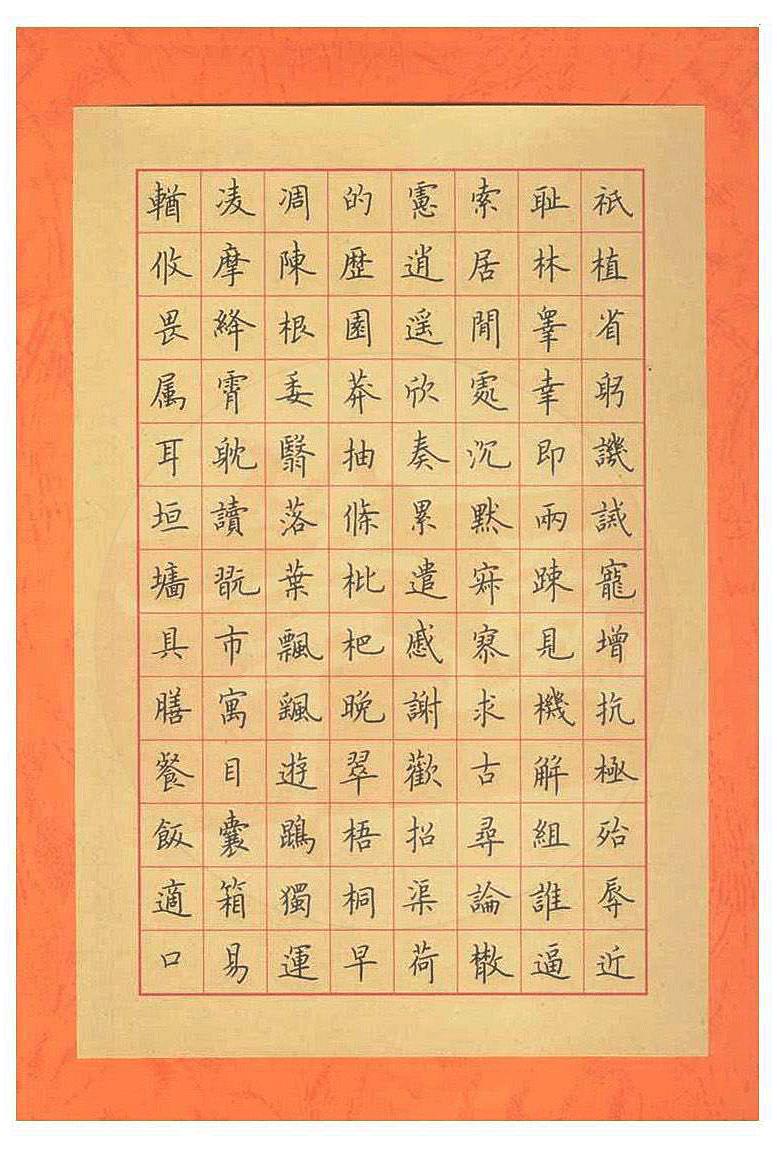 祇植省躬譏誡寵增抗極殆辱近
耻林睾幸即兩踈見機解組誰逼
索居閒處沉默寂寥求古尋論散
慮逍遥欣奏累遣慼謝歡招渠荷
的歷園莽抽條枇杷晚翠梧桐早
凋陳根委翳落葉飄颻遊鵾獨運
凌摩絳霄躭讀翫市寓目囊箱易
輶攸畏属耳垣墻具膳餐飯適口